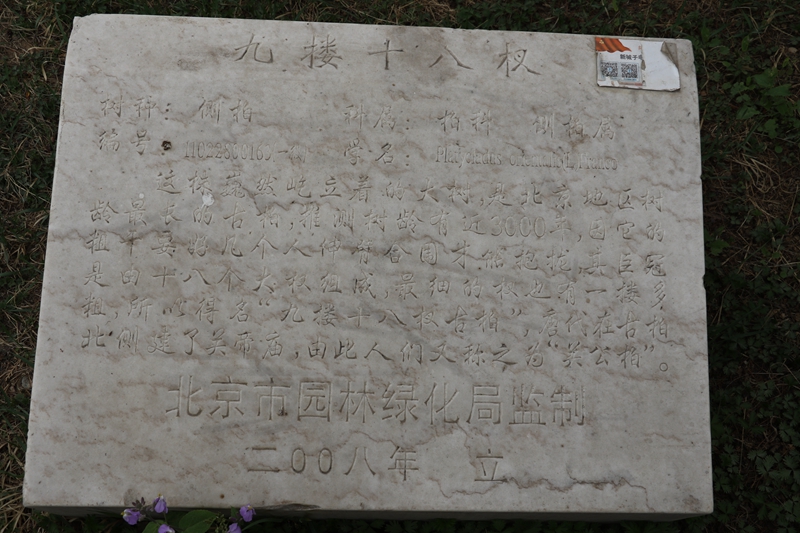 九搂十八杈
树种：侧柏 科属：柏科 侧柏属
编号：11022800165 学名：Platycladus orientalis(L.)Franco
这株巍然屹立着的大树，是北京地区树
龄最长的古柏，推测树龄有近3000年，因它的
粗干要好几个人伸臂合围才能抱拢，其巨冠
是由十八个大杈组成，最细的杈也有一搂多
粗，所以得名“九搂十八杈古柏”，唐代在古柏
北侧建了关帝庙，由此人们又称之为“关公柏”。
北京市园林绿化局监制
二00八年 立